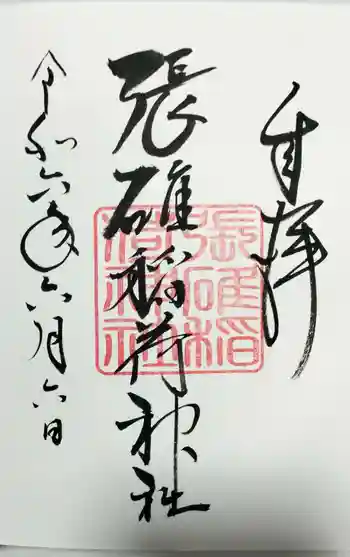 奉拝
張碓稲荷神社
令和六年六月六日
張碓稲
荷神社